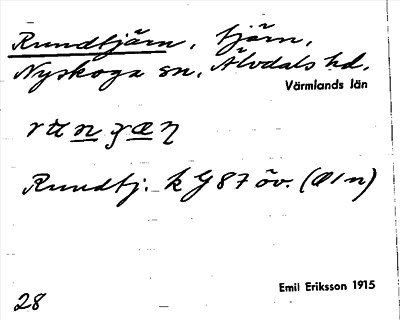 Rundtjärn, tjärn,
Nyskoga sn, Älvdals hd,
Värmlands län
Rundtj. k G 87 öv. (Æ1n)
Emil Eriksson 1915
28